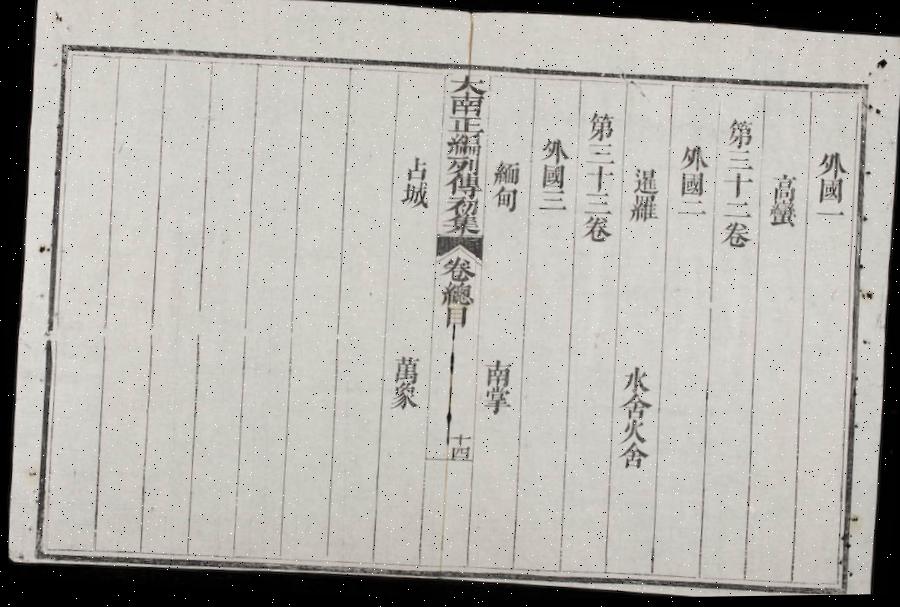 外國一
高蠻
第三十二卷
外國二
暹羅
水舍火舍
第三十三卷
外國三
緬甸
南掌
大南正編列傳初集
卷總目
十四
占城
萬象